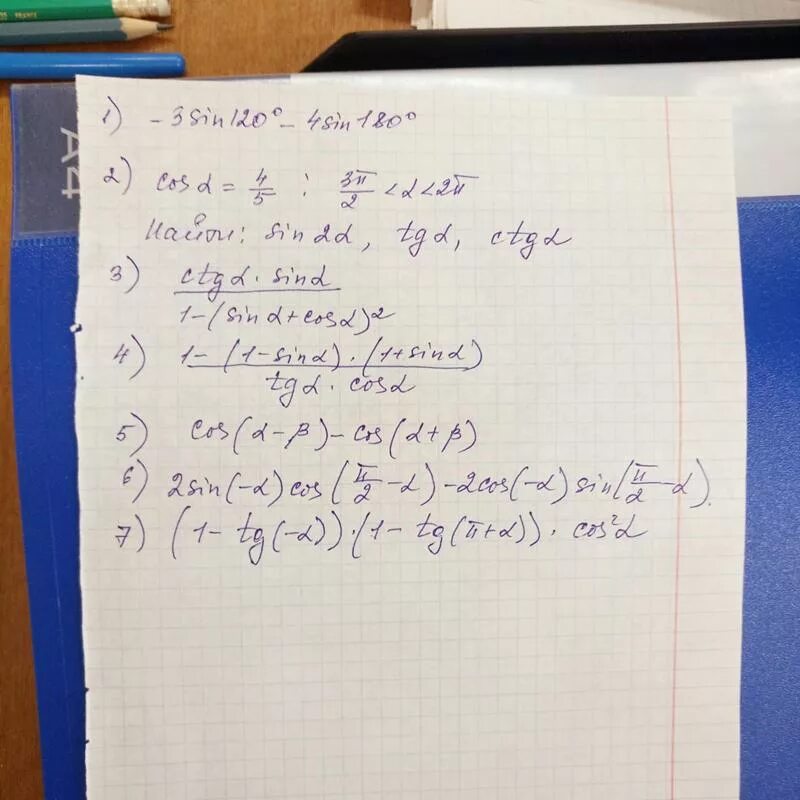 FRANCE
A4
1) -3sin120° - 4sin180°
2) cos α = 4/5 ; 3π/2 < α < 2π
Найти: sin 2α, tg α, ctg α
3) (ctg α · sin α)/(1-(sin α + cos α)²)
4) (1-(1-sin α)·(1+sin α))/(tg α · cos α)
5) cos(α-β) - cos(α+β)
6) 2sin(-α)cos(π/2-α) - 2cos(-α)sin(π/2-α).
7) (1-tg(-α))·(1-tg(π+α))·cos²α